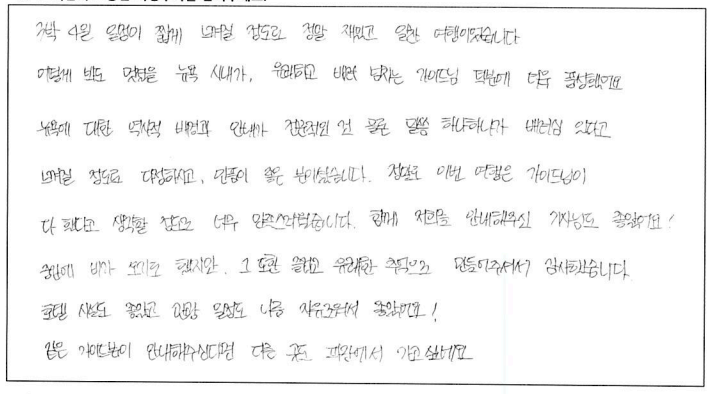 3박 4일 일정이 짧게 느껴질 정도로 정말 재밌고 알찬 여행이었습니다
이렇게 봐도 멋졌을 뉴욕 시내가, 유쾌하고 배려 넘치는 가이드님 덕분에 더욱 풍성했어요
뉴욕에 대한 역사적 배경과 안내가 전문적인 건 물론 말씀 하나하나가 배려심 있다고
느껴질 정도로 다정하시고, 인품이 좋은 분이셨습니다. 정말로 이번 여행은 가이드님이
다 했다고 생각할 정도로 너무 만족스러웠습니다. 함께 저희를 안내해주신 기사님도 좋았어요!
중간에 비가 오기도 했지만, 그 또한 즐겁고 유쾌한 추억으로 만들어주셔서 감사했습니다
호텔 시설도 좋았고 관광 일정도 나름 자유로워서 좋았어요!
같은 가이드님이 안내해주신다면 다른 곳도 패키지에서 가고 싶네요